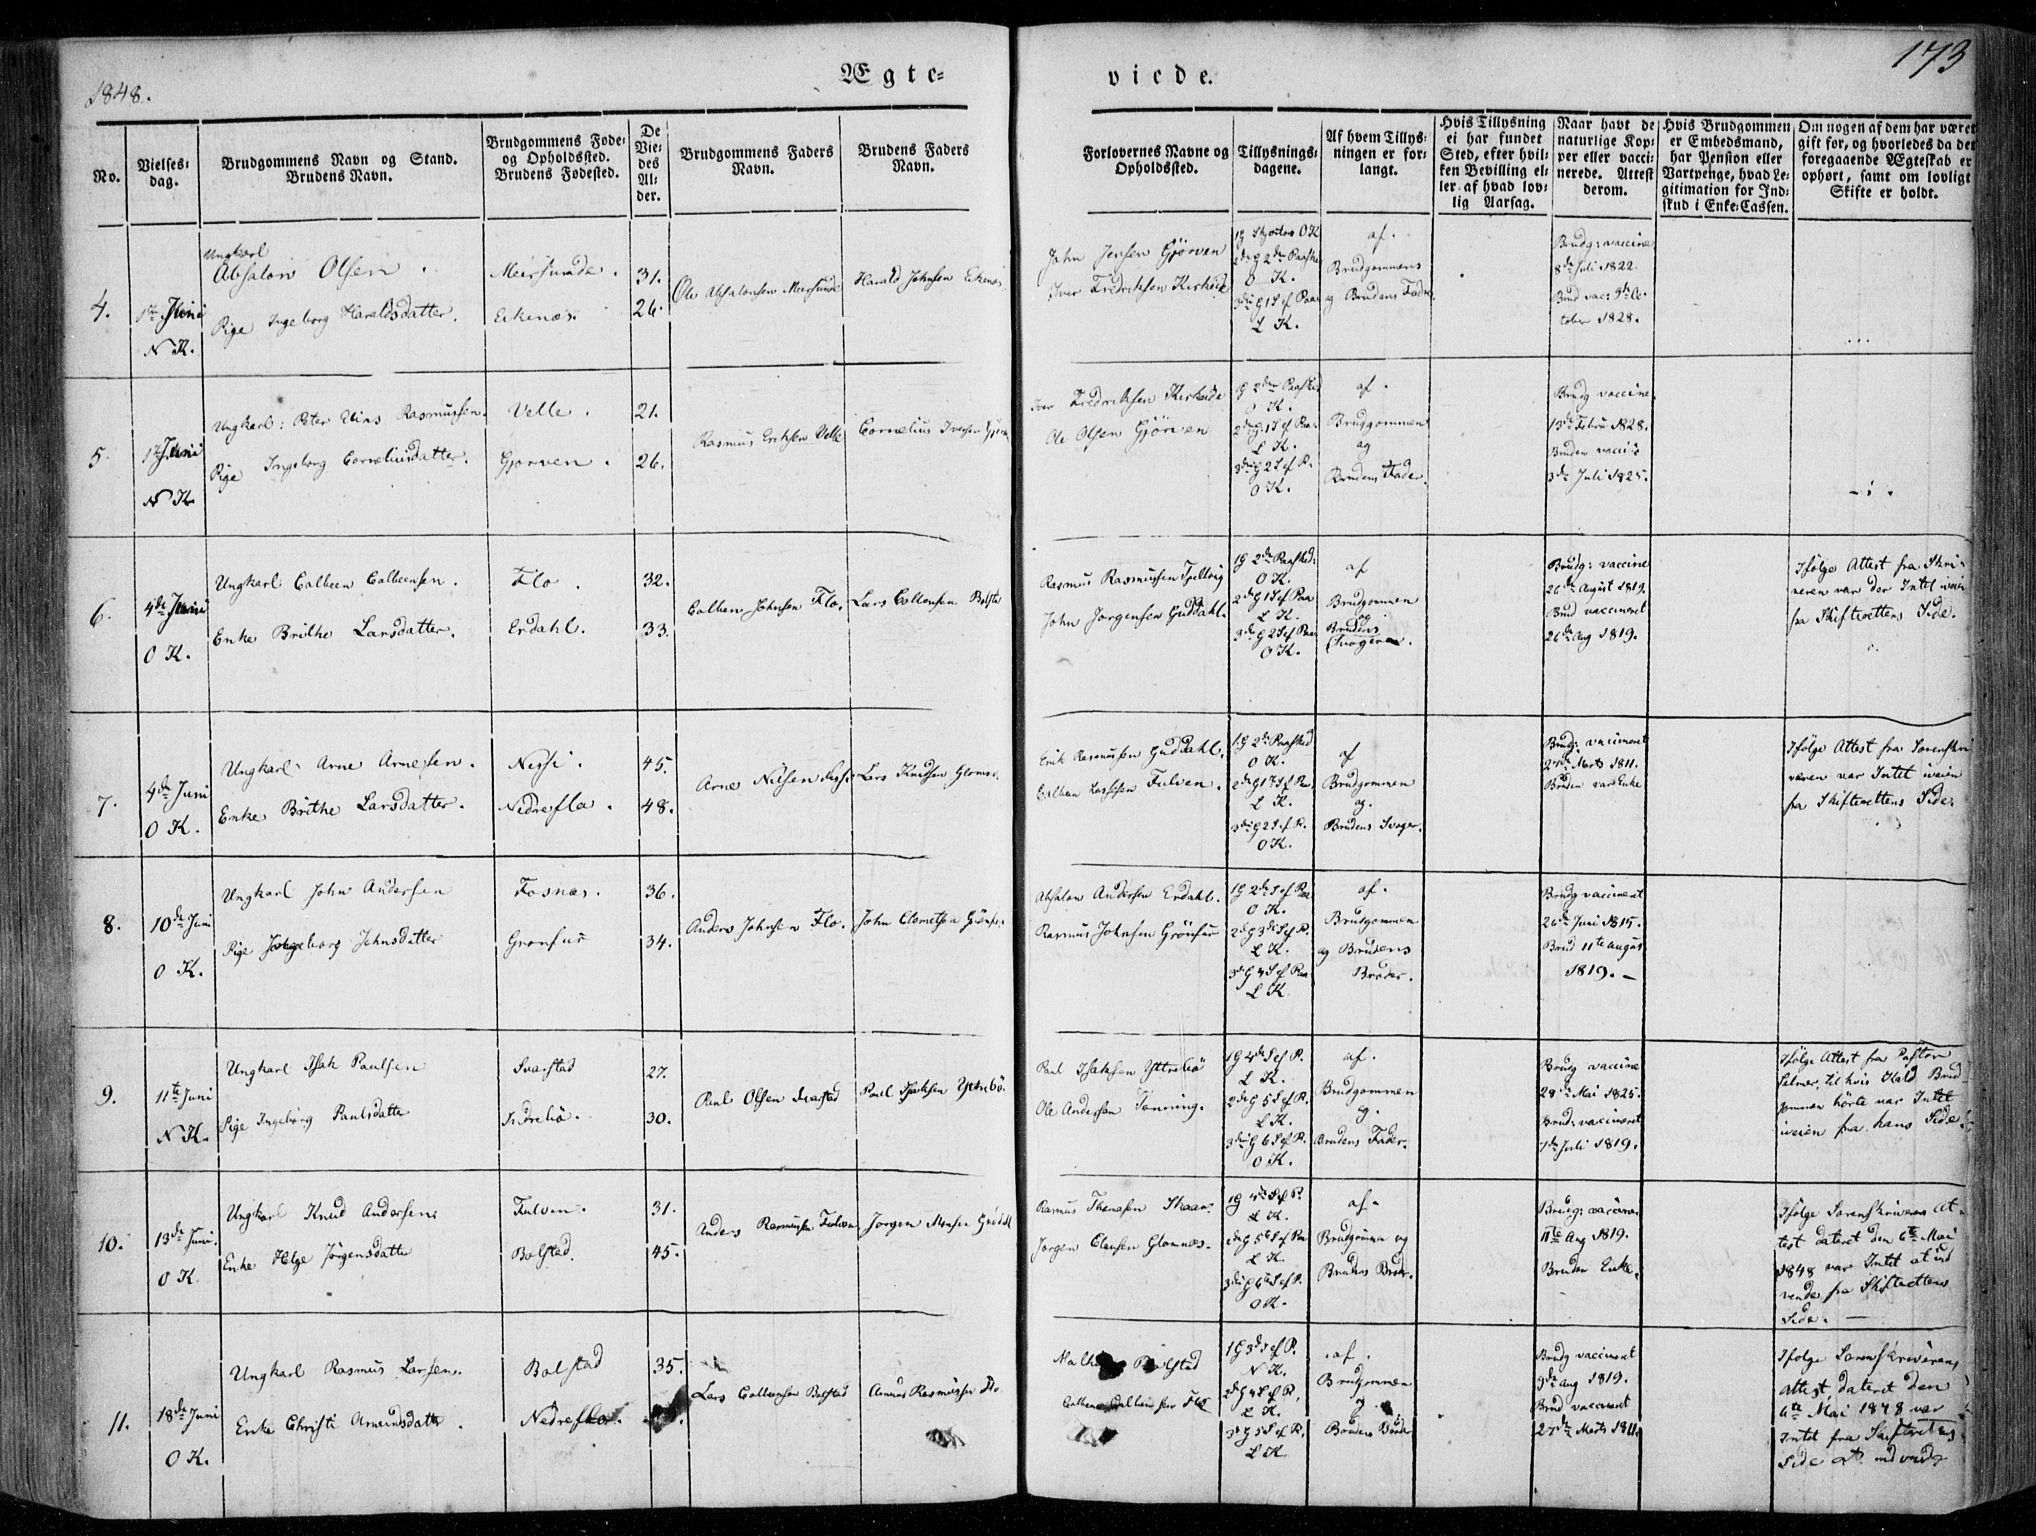 1848.
Ægte=
viede.
173
No.
Vielses=
dag.
Brudgommens Navn og Stand.
Brudens Navn.
Brudgommens Føde=
og Opholdssted.
Brudens Fødested.
De
Vie=
des
Al=
der.
Brudgommens Faders
Navn.
Brudens Faders
Navn.
Forlovernes Navne og
Opholdssted.
Tillysnings=
dagene.
Af hvem Tillys=
ningen er for=
langt.
Hvis Tillysning
ei har fundet
Sted, efter hvil=
ken Bevilling el=
ler af hvad lov=
lig Aarsag.
Naar havt de
naturlige Kop=
per eller vacci=
nerede. Attest
derom.
Hvis Brudgommen
er Embedsmand,
har Pension eller
Vartpenge, hvad Le=
gitimation for Ind=
skud i Enke=Cassen.
Om nogen af dem har været
gift før, og hvorledes da det
foregaaende Ægteskab er
ophørt, samt om lovligt
Skifte er holdt.
4.
1ste Juni
N K.
Ungkarl
Absalon Olsen
Pige Ingeborg Haraldsdatter.
Meirsunde.
Eekenæs.
31.
26.
Ole Absalonsen Meirsunde
Harald Johnsen Eekenæs
John Jensen Gjørven
Iver Fredriksen Kirkeide
O K
2den G 2den Paaske
O K.
3die G 1 S ef Paa
L K.
af.
Brudgommens
og Brudens Fader.
Brudg: vaccine
8de Juli 1822.
Brud vac: 9de Oc
tober 1828.
5.
1ste Juni
N K
Ungkarl: Peter Rasmussen.
Pige Ingeborg Corneliusdatter.
Velle.
Gjørven.
21.
26.
Rasmus Eriksen Velle
Cornelius Iversen Gjørv
Iver Fredriksen Kirkeide
Ole Olsen Gjørven
1 G 2den Paasked
O K.
2den G 1 S ef Paa
L K.
3die G 2 S ef P.
O K.
af.
Bruggommen
og
Brudens Fader.
Brudg vaccine.
13de Febru 1828.
Bruden vacci
3de Juli 1825.
6.
4de Juni
O K.
Ungkarl Colbeen Colbeensen.
Enke Brithe Larsdatter.
Flo.
Erdahl.
32.
33.
Colben Johnsen Flo.
Lars Colbensen Bolsta
Rasmus Rasmussen
John Jørgensen Guddahl.
1 G 2den Paasked:
O K.
2den G 1 S ef Paa
L K.
3die G 2 S ef Paa
O K.
af
Brudgommen
og
Brudens
Svogeren.
Brudg: vaccine
26de August 1819.
Brud vaccineret
26de Aug 1819.
Ifølge Attest fra Skri=
veren var der Intet iveien
fra Skifterettens Side.
7.
4de Juni
O K.
Ungkarl Arne Arnesen.
Enke Brithe Larsdatter.
Nessi.
Nedreflo.
45.
48.
Arne Nilsen Nessi
Lars Knudsen Glomnes.
Erik Rasmussen Guddahl.
Colbeen Fulven.
1 G 2den Paasked
O K.
2den G 1te S ef Paa
L K.
3die G 2 S ef P.
O K.
af
Brudgommen
og.
Brudens Svoger.
Brudg: vaccineret
27de Marts 1811.
Bruden var Enke
Ifølge Attest fra Sorenskri
veren var Intet iveien
fra Skifterettens Side.
8.
10de Juni
O K.
Ungkarl John Andersen
Pige Ingeborg Johnsdatter
Fosnæs.
Grønfur
36.
34.
Anders Johnsen Flo.
John Clemetsen Grønfur.
Absalon Andersen Erdahl.
Rasmus Johnsen Grønfur
1 G 2de S ef Paa
O K.
2den G 3de S ef P.
L K.
3die G 4 S ef Paa
L K
af.
Brudgommen
og Brudens
Broder.
Brudg vaccineret
26de Juni 1815.
Brud 11te august
1819. —
9.
11te Juni
N K.
Ungkarl Isak Paulsen
Pige Ingeborg Paulsdatter
Svarstad
27.
30.
Paul Olsen Svarstad
Paul Isaksen Yttrebø.
Paul Isaksen Yttrebø
Ole Andersen Tonning.
1 G 4de S ef P.
L K.
2den G 5 S ef P.
L K.
3die G 6 S ef P.
O K.
af.
Brudgommen
og.
Brudens Fader.
Brudg vaccine
28de Mai 1825.
Brud: vaccineret
7de Juli 1819.
Ifølge Attest fra Pastor
til hvis Kald Brud
gommen hørte var Intet
iveien fra hans Side.
10.
13de Juni.
O K
Ungkarl Knud Andersen
Enke Helge Jørgensdatter
Fulven.
Bolstad.
31.
45.
Anders Rasmussen Fulven
Jørgen Monsen
Rasmus Thomasen Skaar.
Jørgen Clausen Glomnæs.
1 G 4de S ef P.
L K.
2den G 5te S ef Paa
L K.
3die G 6te S ef P.
O K.
af.
Brudgommen og
Brudens Broder.
Brudg: vaccine
11te Aug 1819.
Bruden Enke.
Ifølge Sorenskriverens At=
test dateret den 6te Mai
1848 var Intet at ind
vende fra Skifterettens
Side. —
11.
18de Juni
O K.
Ungkarl Rasmus Larsen.
Enke Christi Amundsdatter.
Bolstad
Nedreflo.
35.
Lars Colbensen Bolstad
Amund Rasmussen Flo
Bolstad
Flo
1 G 3de S ef P.
N K.
2den G 4 S ef P.
L K.
3die G 5 S ef P.
L K.
af.
Brudgommen
og
Brudens Broder
Brudg vaccineret
9de Aug 1819.
Brud vaccineret
27de Marts 1811.
Ifølge Sorenskriverens
Attest, dateret den
6te Mai 1848 var
Intet fra Skifterettens
Side at indvende